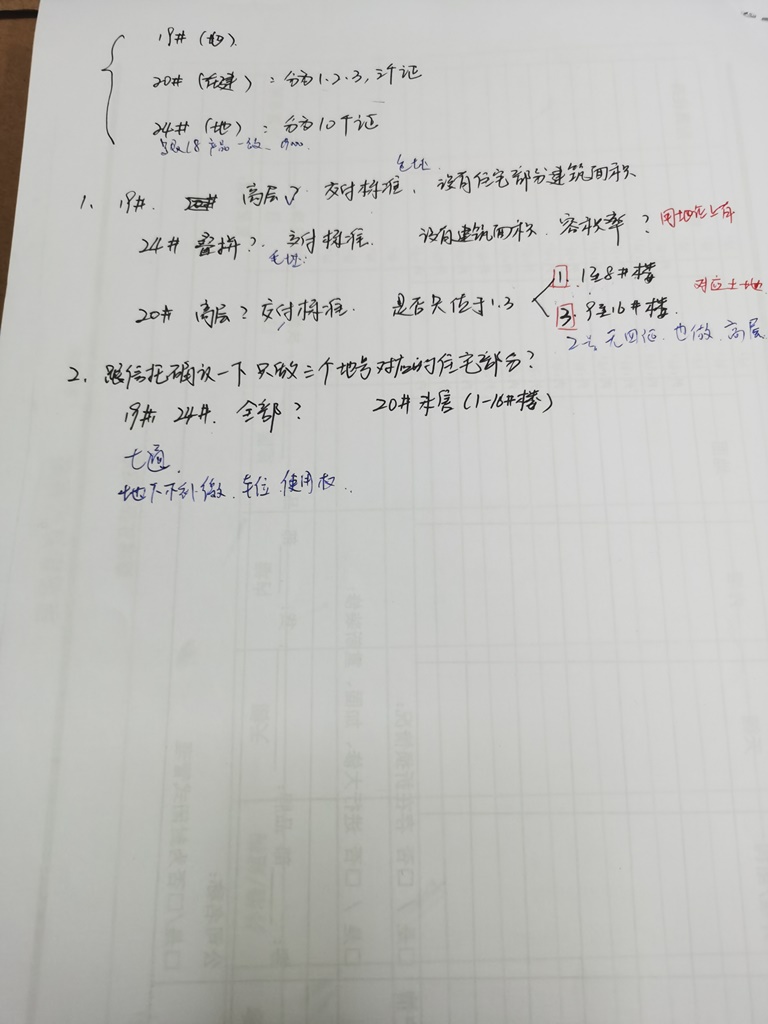 19#（地）
20#（在建）：分为1.2.3，三个证
24#（地）：分为10个证
产品一致
毛坯
1、19#. 高层？交付标准，没有住宅部分建筑面积
24# 叠拼？交付标准. 没有建筑面积、容积率？
毛坯
20# 高层？交付标准. 是否只位于1.3
1. 1至8#楼
3. 9至16#楼
对应土地
2号无四证 也做 高层
2、跟信托确认一下 只做三个地号对应的住宅部分？
19#, 24#. 全部？ 20#未售（1-16#楼）
七通.
地下不补缴、车位 使用权.